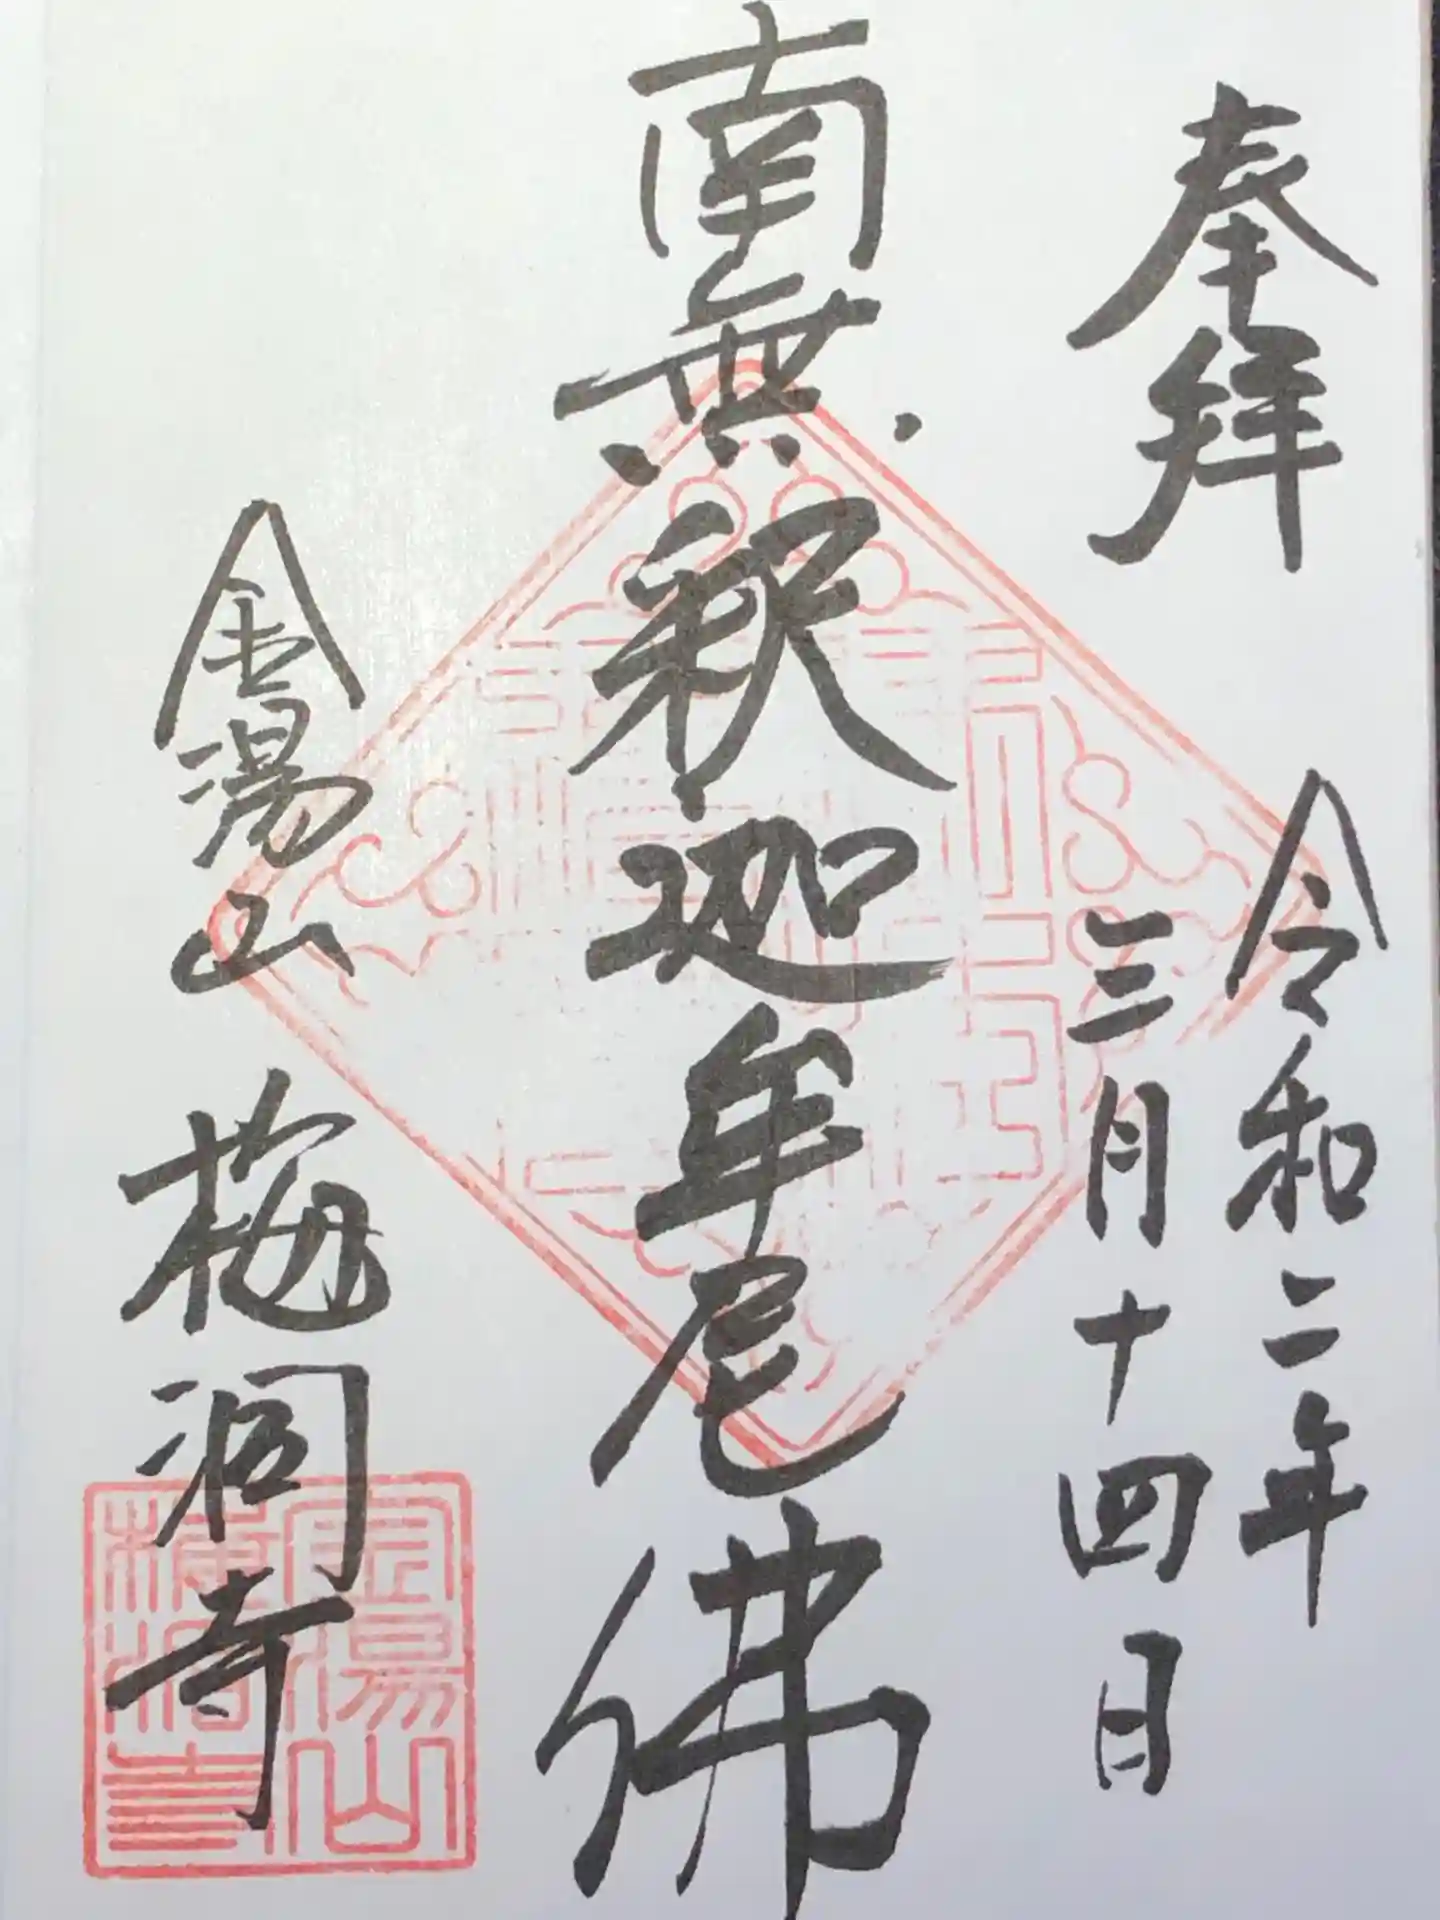 奉拝
令和二年
三月十四日
南無釈迦牟尼佛
金湯山 梅洞寺
金湯山
梅洞寺